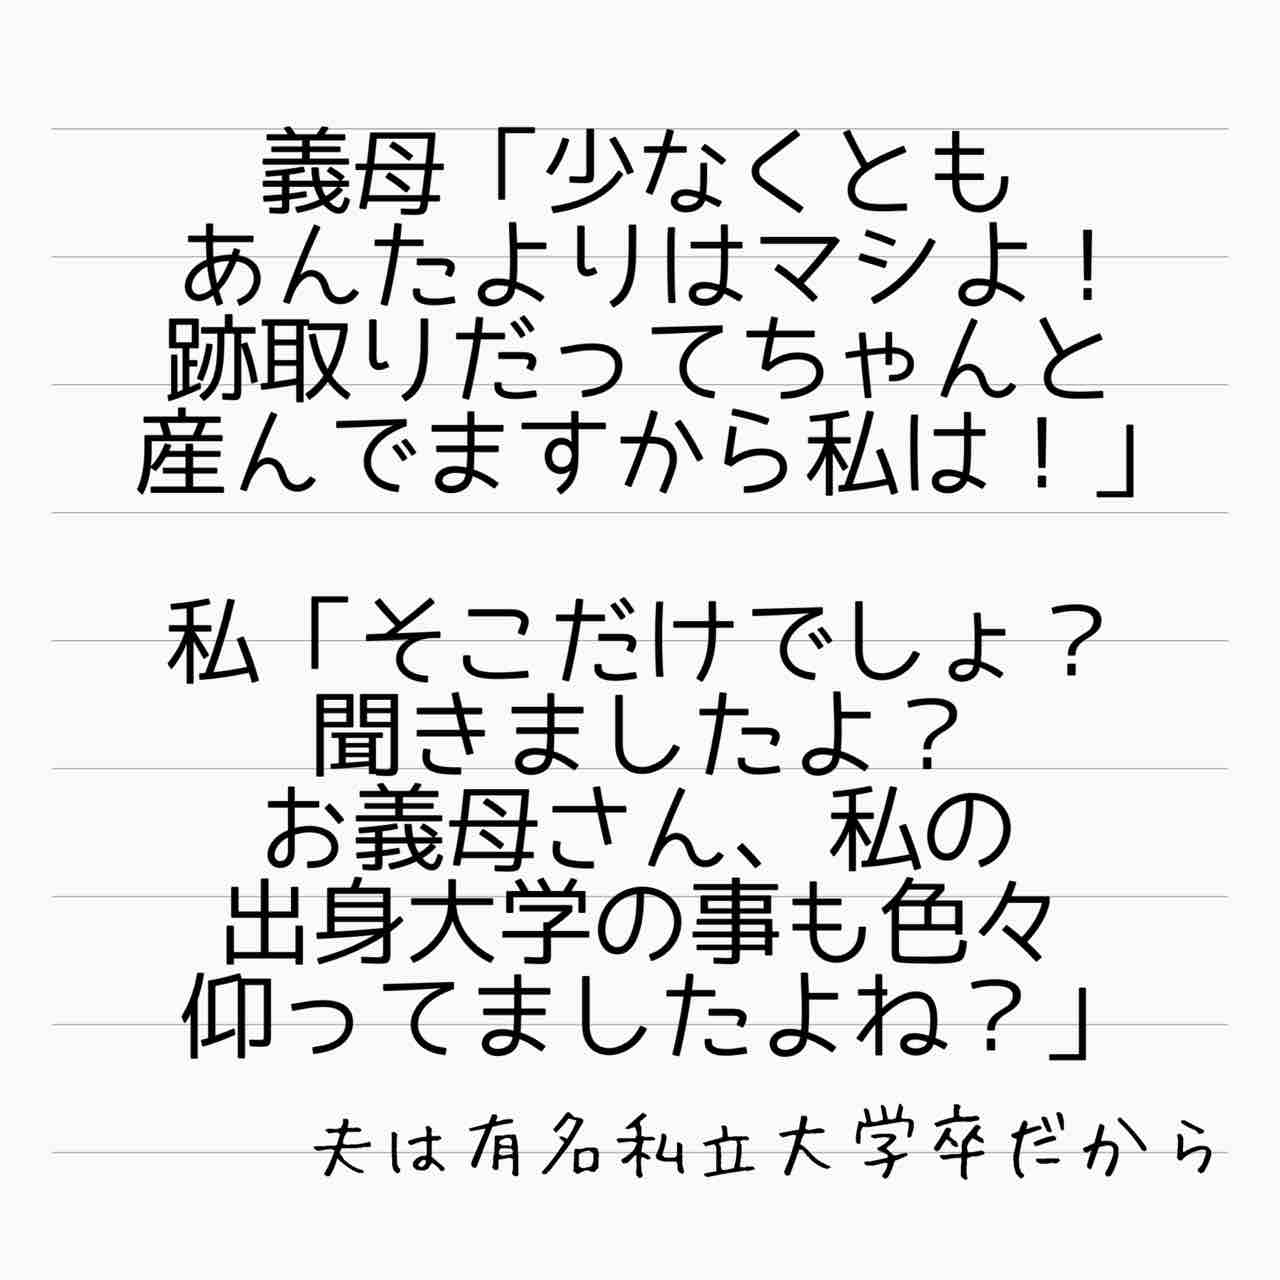 義母「少なくとも
あんたよりはマシよ！
跡取りだってちゃんと
産んでますから私は！」
私「そこだけでしょ？
聞きましたよ？
お義母さん、私の
出身大学の事も色々
仰ってましたよね？」
夫は有名私立大学卒だから